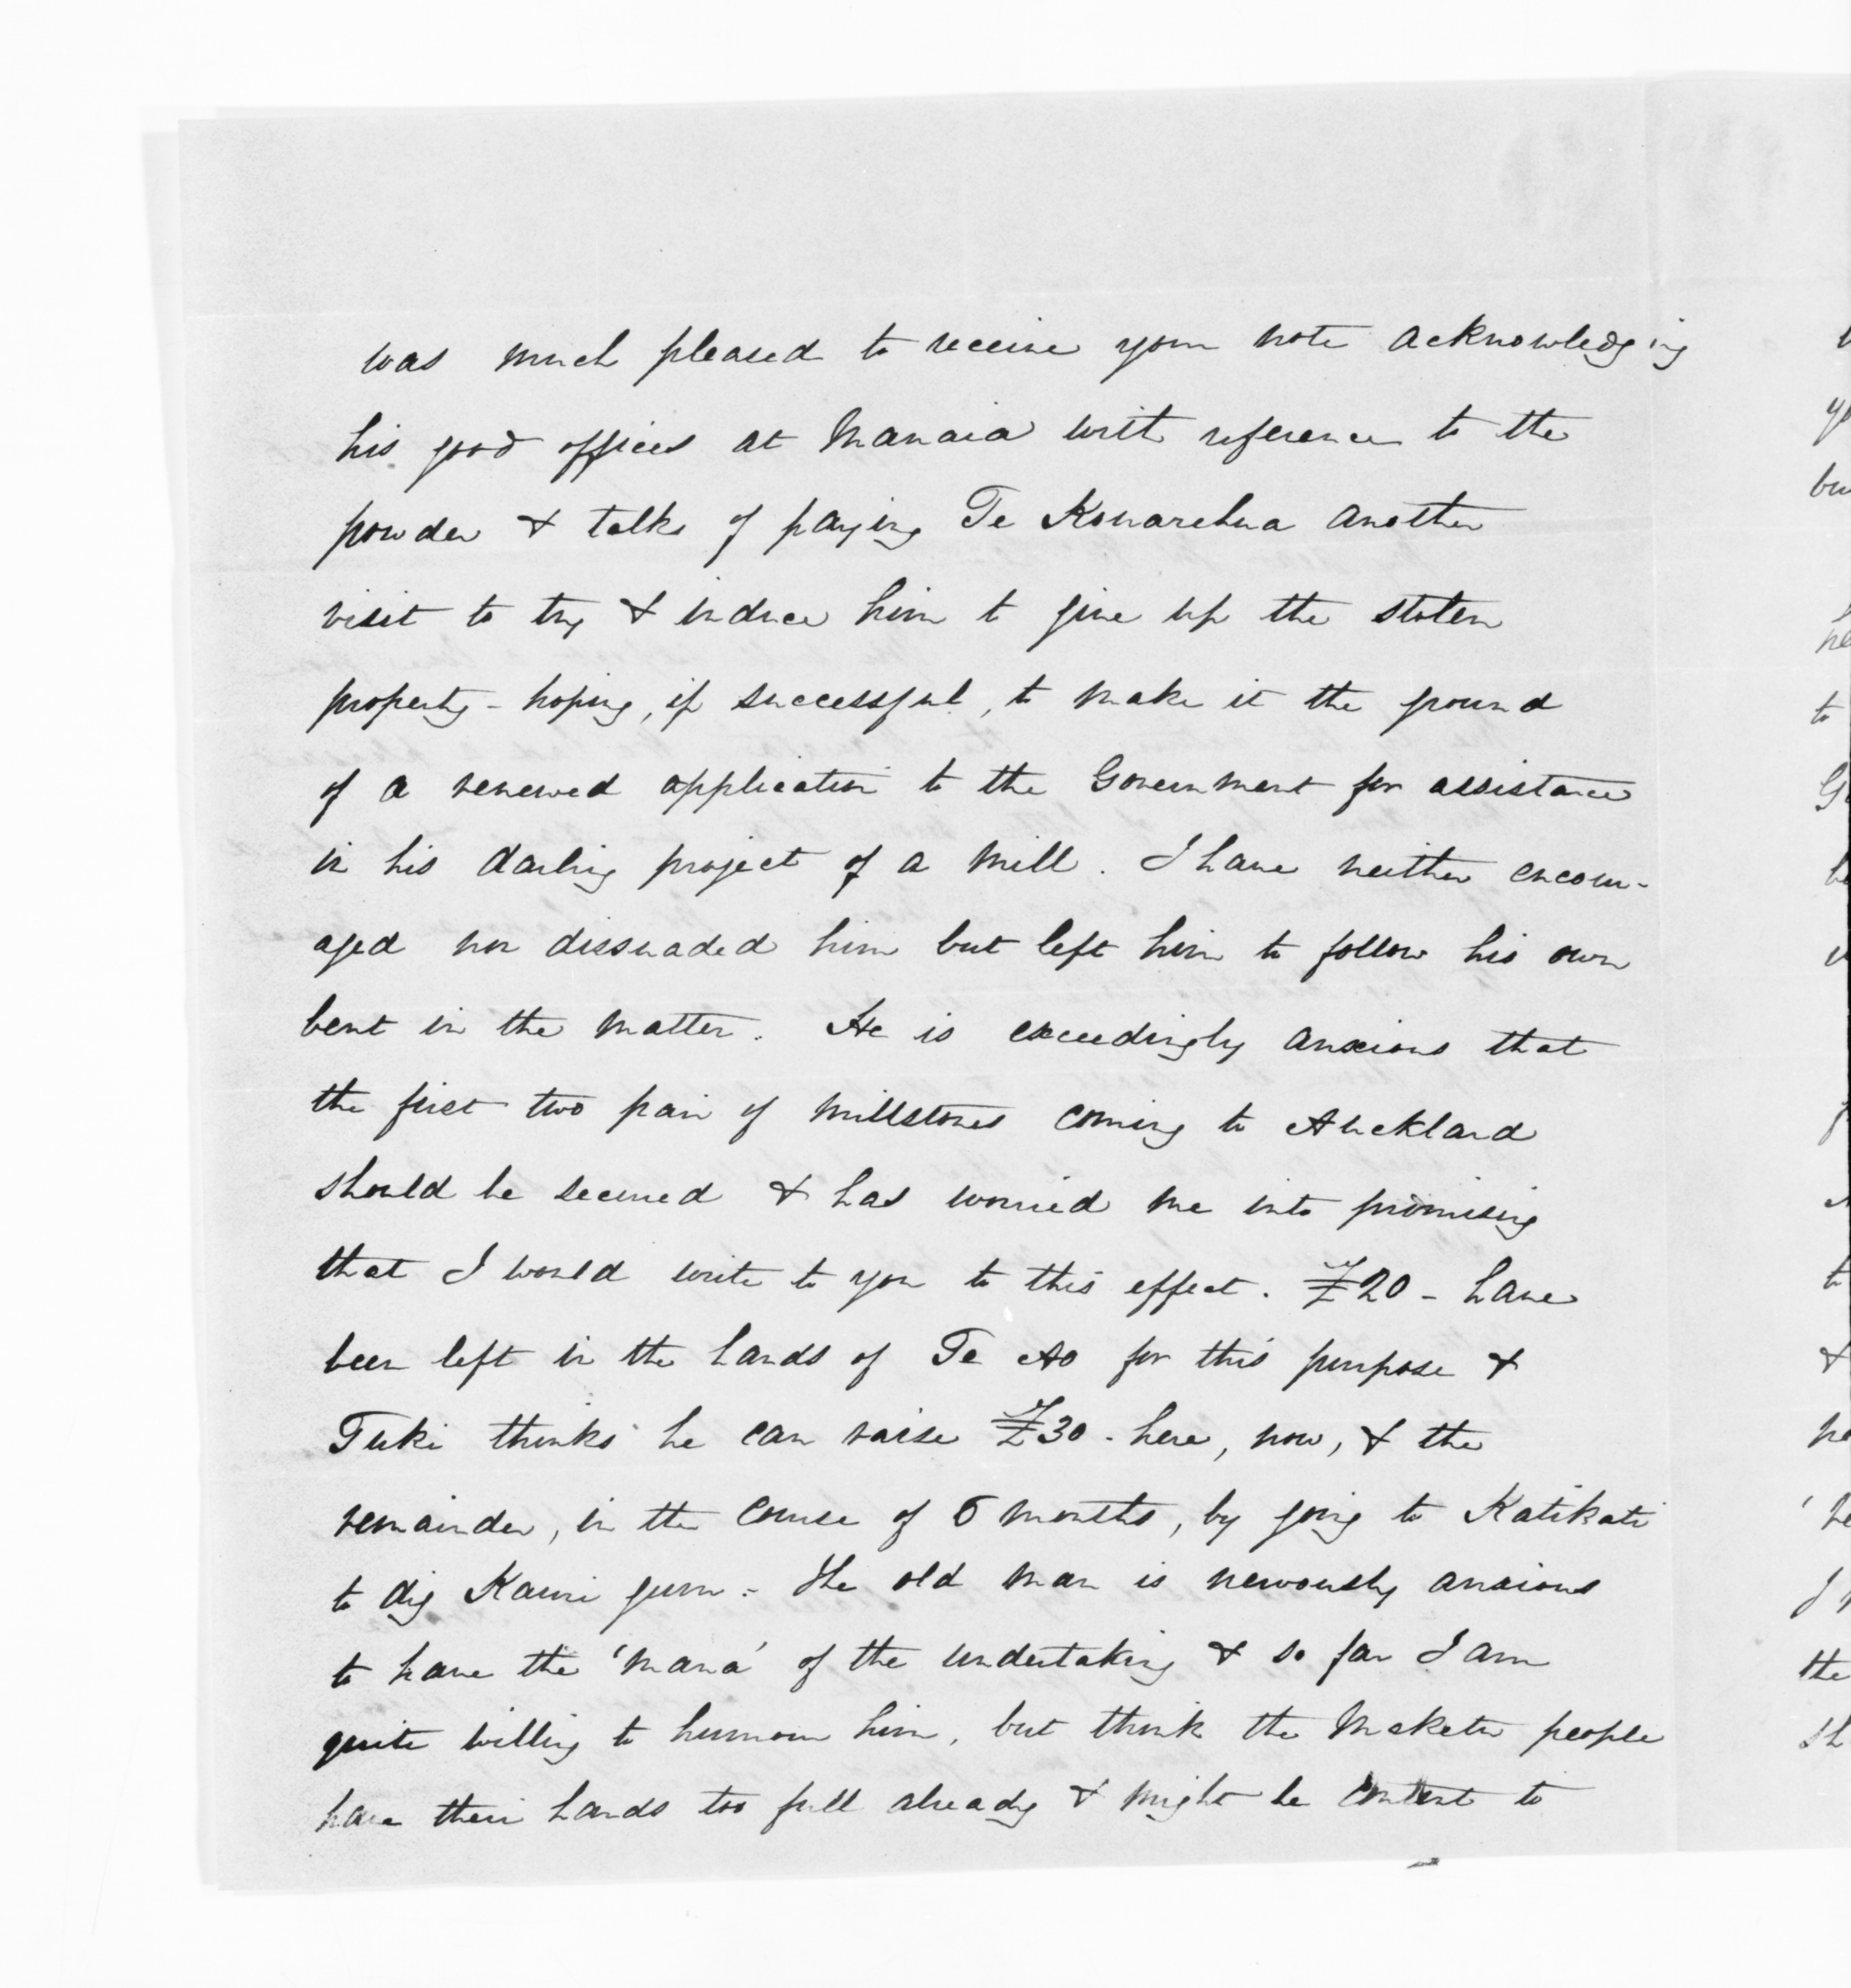 was much pleased to receive your note acknowledging
his good offices at Manaia with reference to the
powder & talks of paying Te Kouarehua another
visit to try & induce him to give up the stolen
property - hoping, if successful, to make it the ground
of a renewed application to the Government for assistance
in his darling project of a Mill. I have neither encour-
aged nor dissuaded him but left him to follow his own
bent in the matter. He is exceedingly anxious that
the first two pair of Millstones coming to Auckland
should be secured & has worried me into promising
that I would write to you to this effect. £20 - have
been left in the hands of Te Ao for this purpose &
Tuki thinks he can raise £30 - here, now, & the
remainder, in the course of 6 months, by going to Katikati
to dig Kauri gum - The old man is nervously anxious
to have the 'mana' of the undertaking & so far I am
quite willing to humour him, but think the Maketu people
have their hands too full already & might be content to